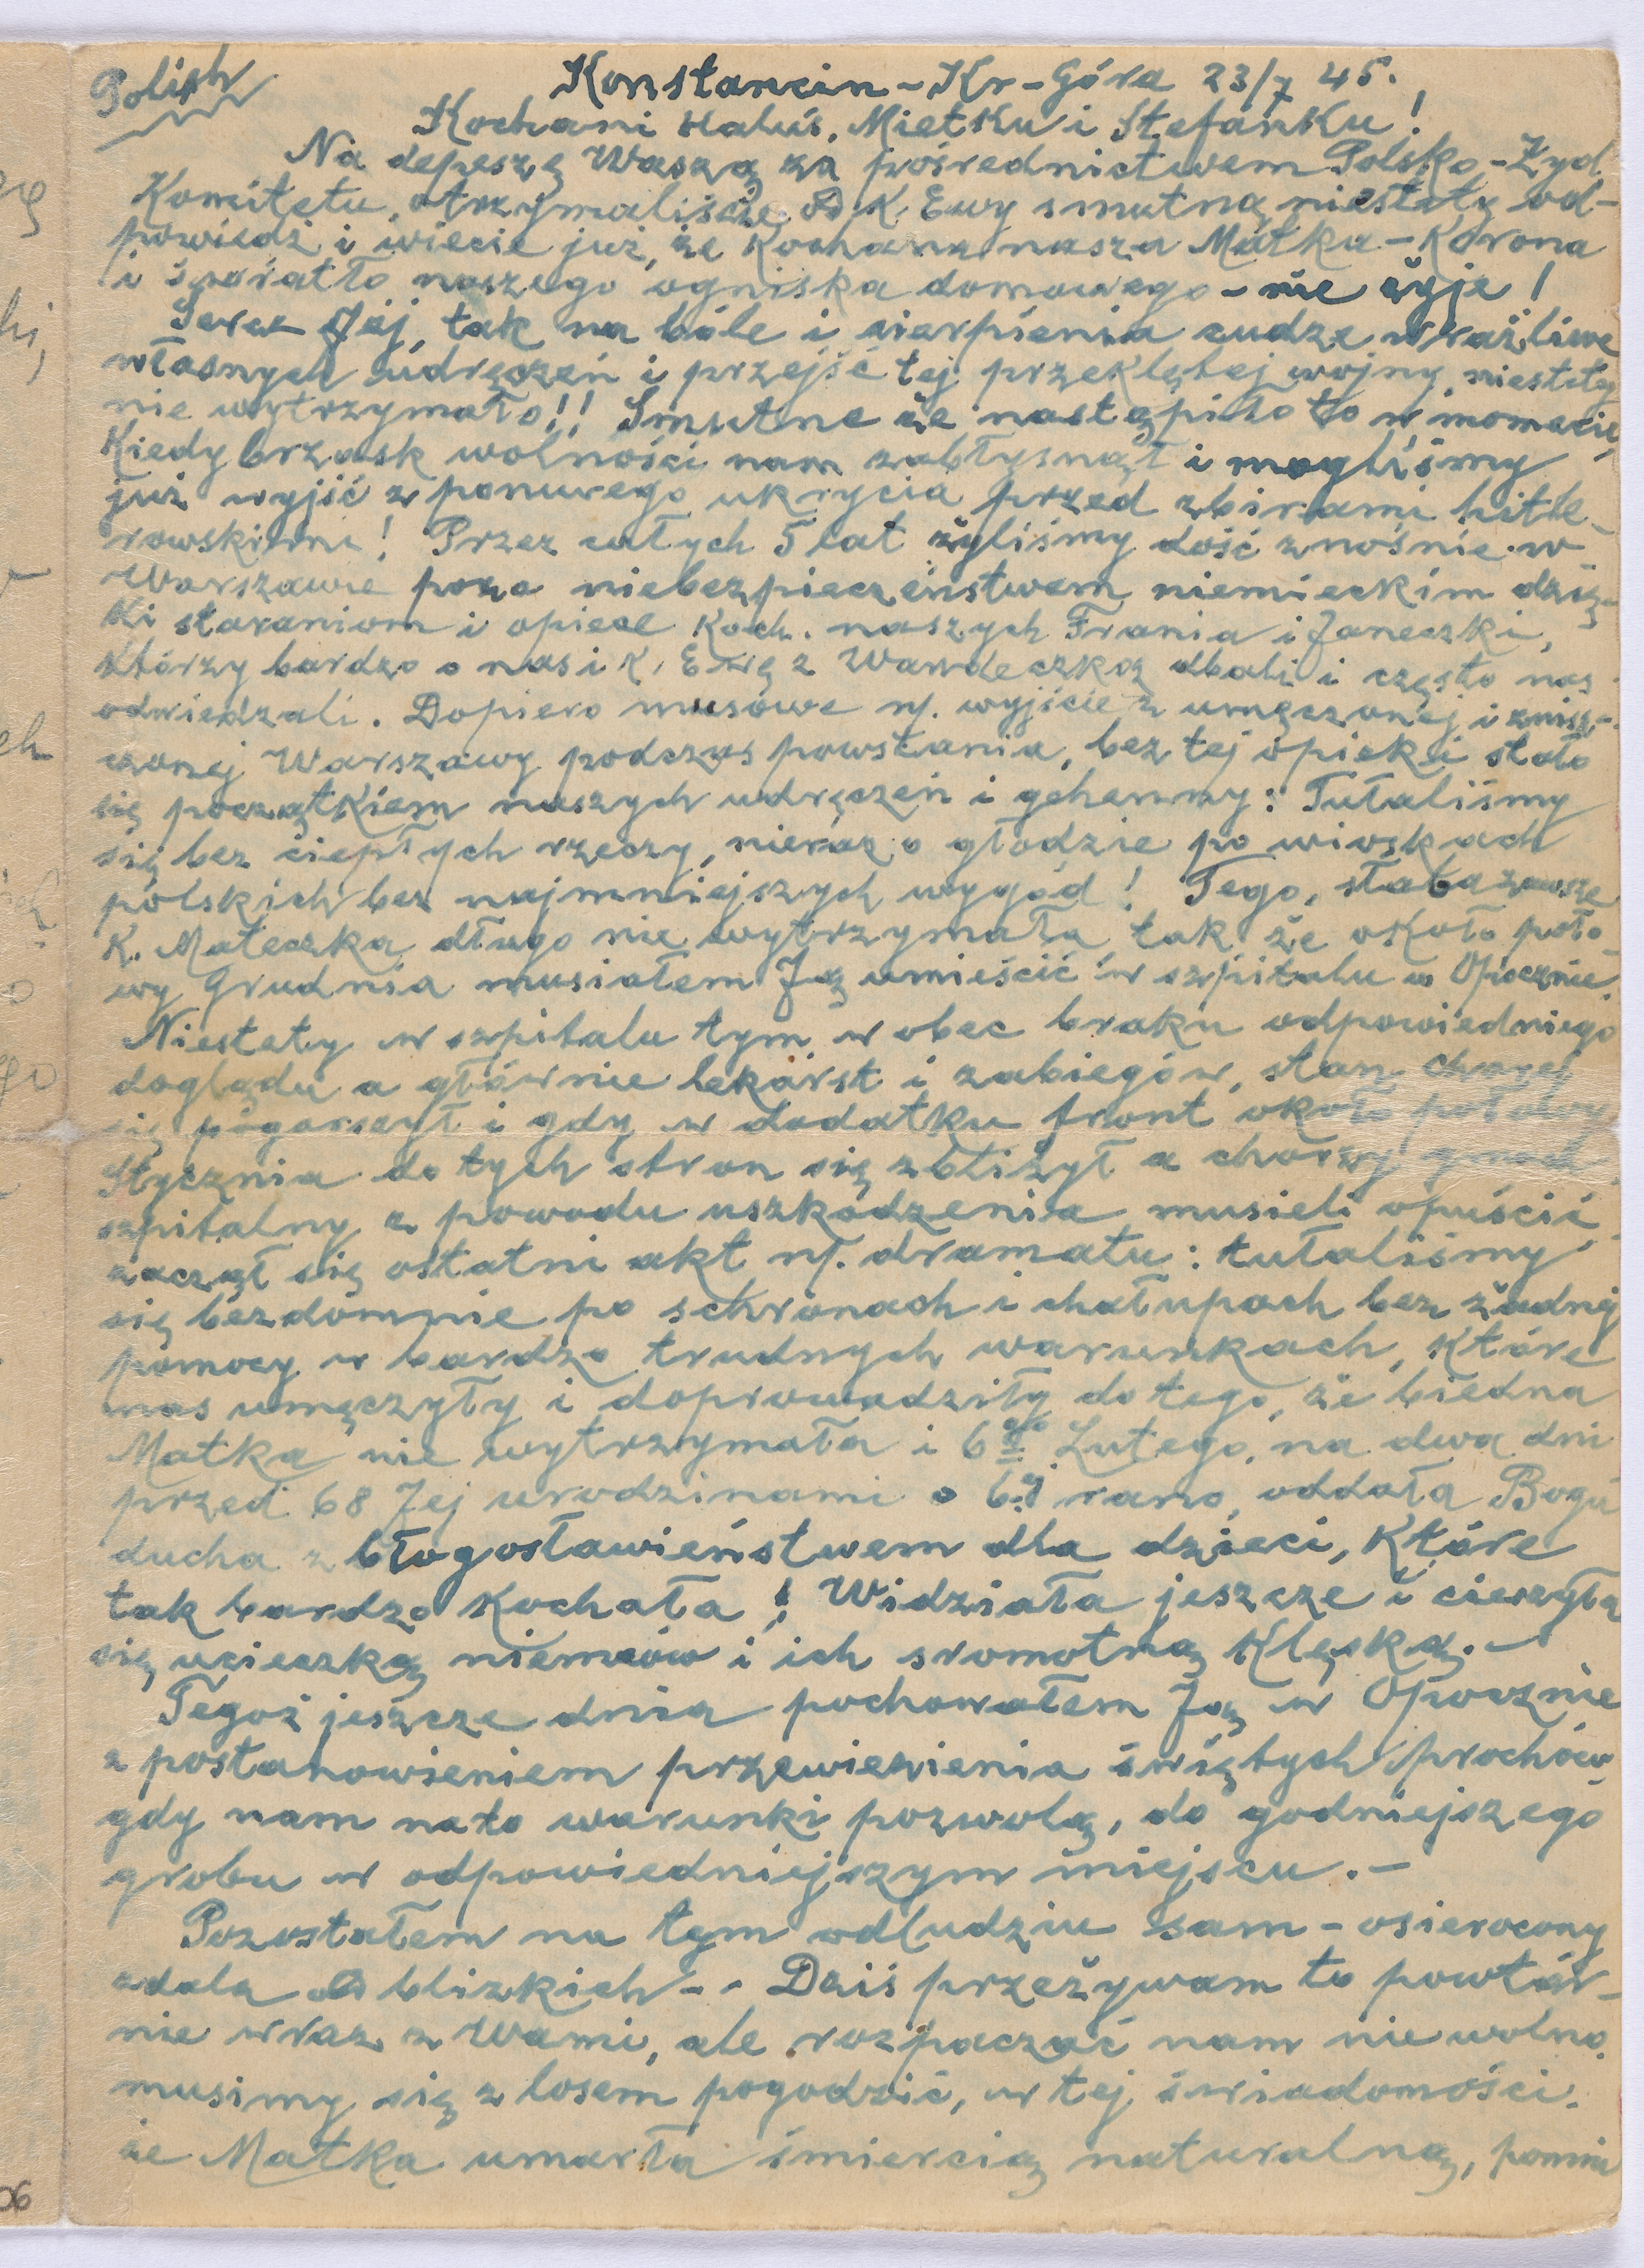 Polish
Konstancin-Kr-Góra 23/7 45.
Kochani Haluś, Mietku i Stefanku!
Na depeszę Waszą za pośrednictwem Polsko-Żyd.
Komitetu, otrzymaliście od K. Ewy smutną niestety od-
powiedź i wiecie już, że Kochana nasza Matka-Korona
i światło naszego ogniska domowego - nie żyje!
Serce Jej, tak na bóle i cierpienia cudze wrażliwe
własnych udręczeń i przejść tej przeklętej wojny, niestety
nie wytrzymało!! Smutne że nastąpiło to w momencie,
Kiedy brzask wolności nam zabłysnął i mogliśmy
już wyjść z ponurego ukrycia przed zbirami hitle-
rowskimi! Przez całych 5 lat żyliśmy dość znośnie w
Warszawie poza niebezpieczeństwem niemieckim dzię-
ki staraniom i opiece Koch. naszych Frania i Janeczki,
którzy bardzo o nas i K. Ewę z Wandeczką dbali i często nas
odwiedzali. Dopiero musowe n/. wyjście z umęczonej i znisz-
czonej Warszawy podczas powstania, bez tej opieki stało
się początkiem naszych udręczeń i gehenny: Tułaliśmy
się bez ciepłych rzeczy, nieraz o głodzie po wioskach
polskich bez najmniejszych wygód! Tego, słaba zawsze
K. Mateczka długo nie wytrzymała tak że około poło-
wy Grudnia musiałem Ją umieścić w szpitalu w Opocznie.
Niestety w szpitalu tym wobec braku odpowiedniego
doglądu a głównie lekarst i zabiegów, stan chorej
się pogorszył i gdy w dodatku front około połowy
Stycznia do tych stron się zbliżył a chorzy gmach
szpitalny z powodu uszkodzenia musieli opuścić,
zaczął się ostatni akt n/. dramatu: tułaliśmy
się bezdomnie po schronach i chałupach bez żadnej
pomocy w bardzo trudnych warunkach, które
nas umęczyły i doprowadziły do tego, że biedna
Matka nie wytrzymała i 6go Lutego, na dwa dni
przed 68 Jej urodzinami o 6ej rano, oddała Bogu
ducha z błogosławieństwem dla dzieci, Które
tak bardzo Kochała! Widziała jeszcze i cieszyła
się ucieczką niemców i ich sromotną Klęską.-
Tegoż jeszcze dnia pochowałem Ją w Opocznie
z postanowieniem przewiezienia świętych prochów,
gdy nam nato warunki pozwolą, do godniejszego
grobu w odpowiedniejszym miejscu.-
Pozostałem na tym odludziu sam - osierocony
zdala od blizkich-- Dziś przeżywam to powtór-
nie wraz z Wami, ale rozpaczać nam nie wolno
musimy się z losem pogodzić, w tej świadomości,
że Matka umarła śmiercią naturalną, pomi